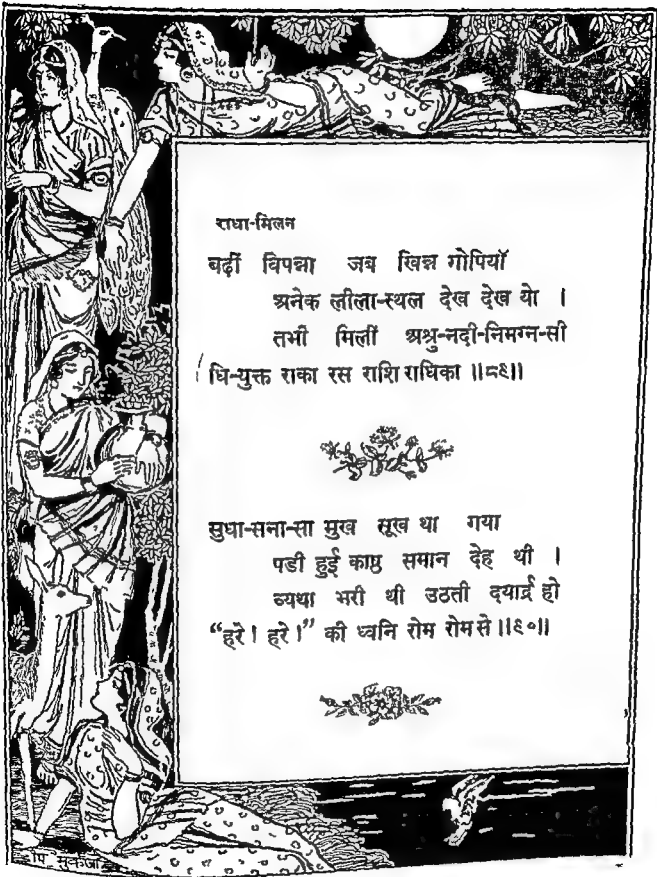 राधा-मिलन
बढ़ीं विपन्ना जब खिन्न गोपियाँ
अनेक लीला-स्थल देख देख यो ।
तभी मिलीं अश्रु-नदी-निमग्न-सी
धि-युक्त राका रस राशि राधिका ॥८९॥
सुधा-सना-सा मुख सूख था गया
पडी हुई काष्ठ समान देह थी ।
व्यथा भरी थी उठती दयार्द्र हो
“हरे ! हरे !” की ध्वनि रोम रोम से ॥९०॥
पि मुकर्जी